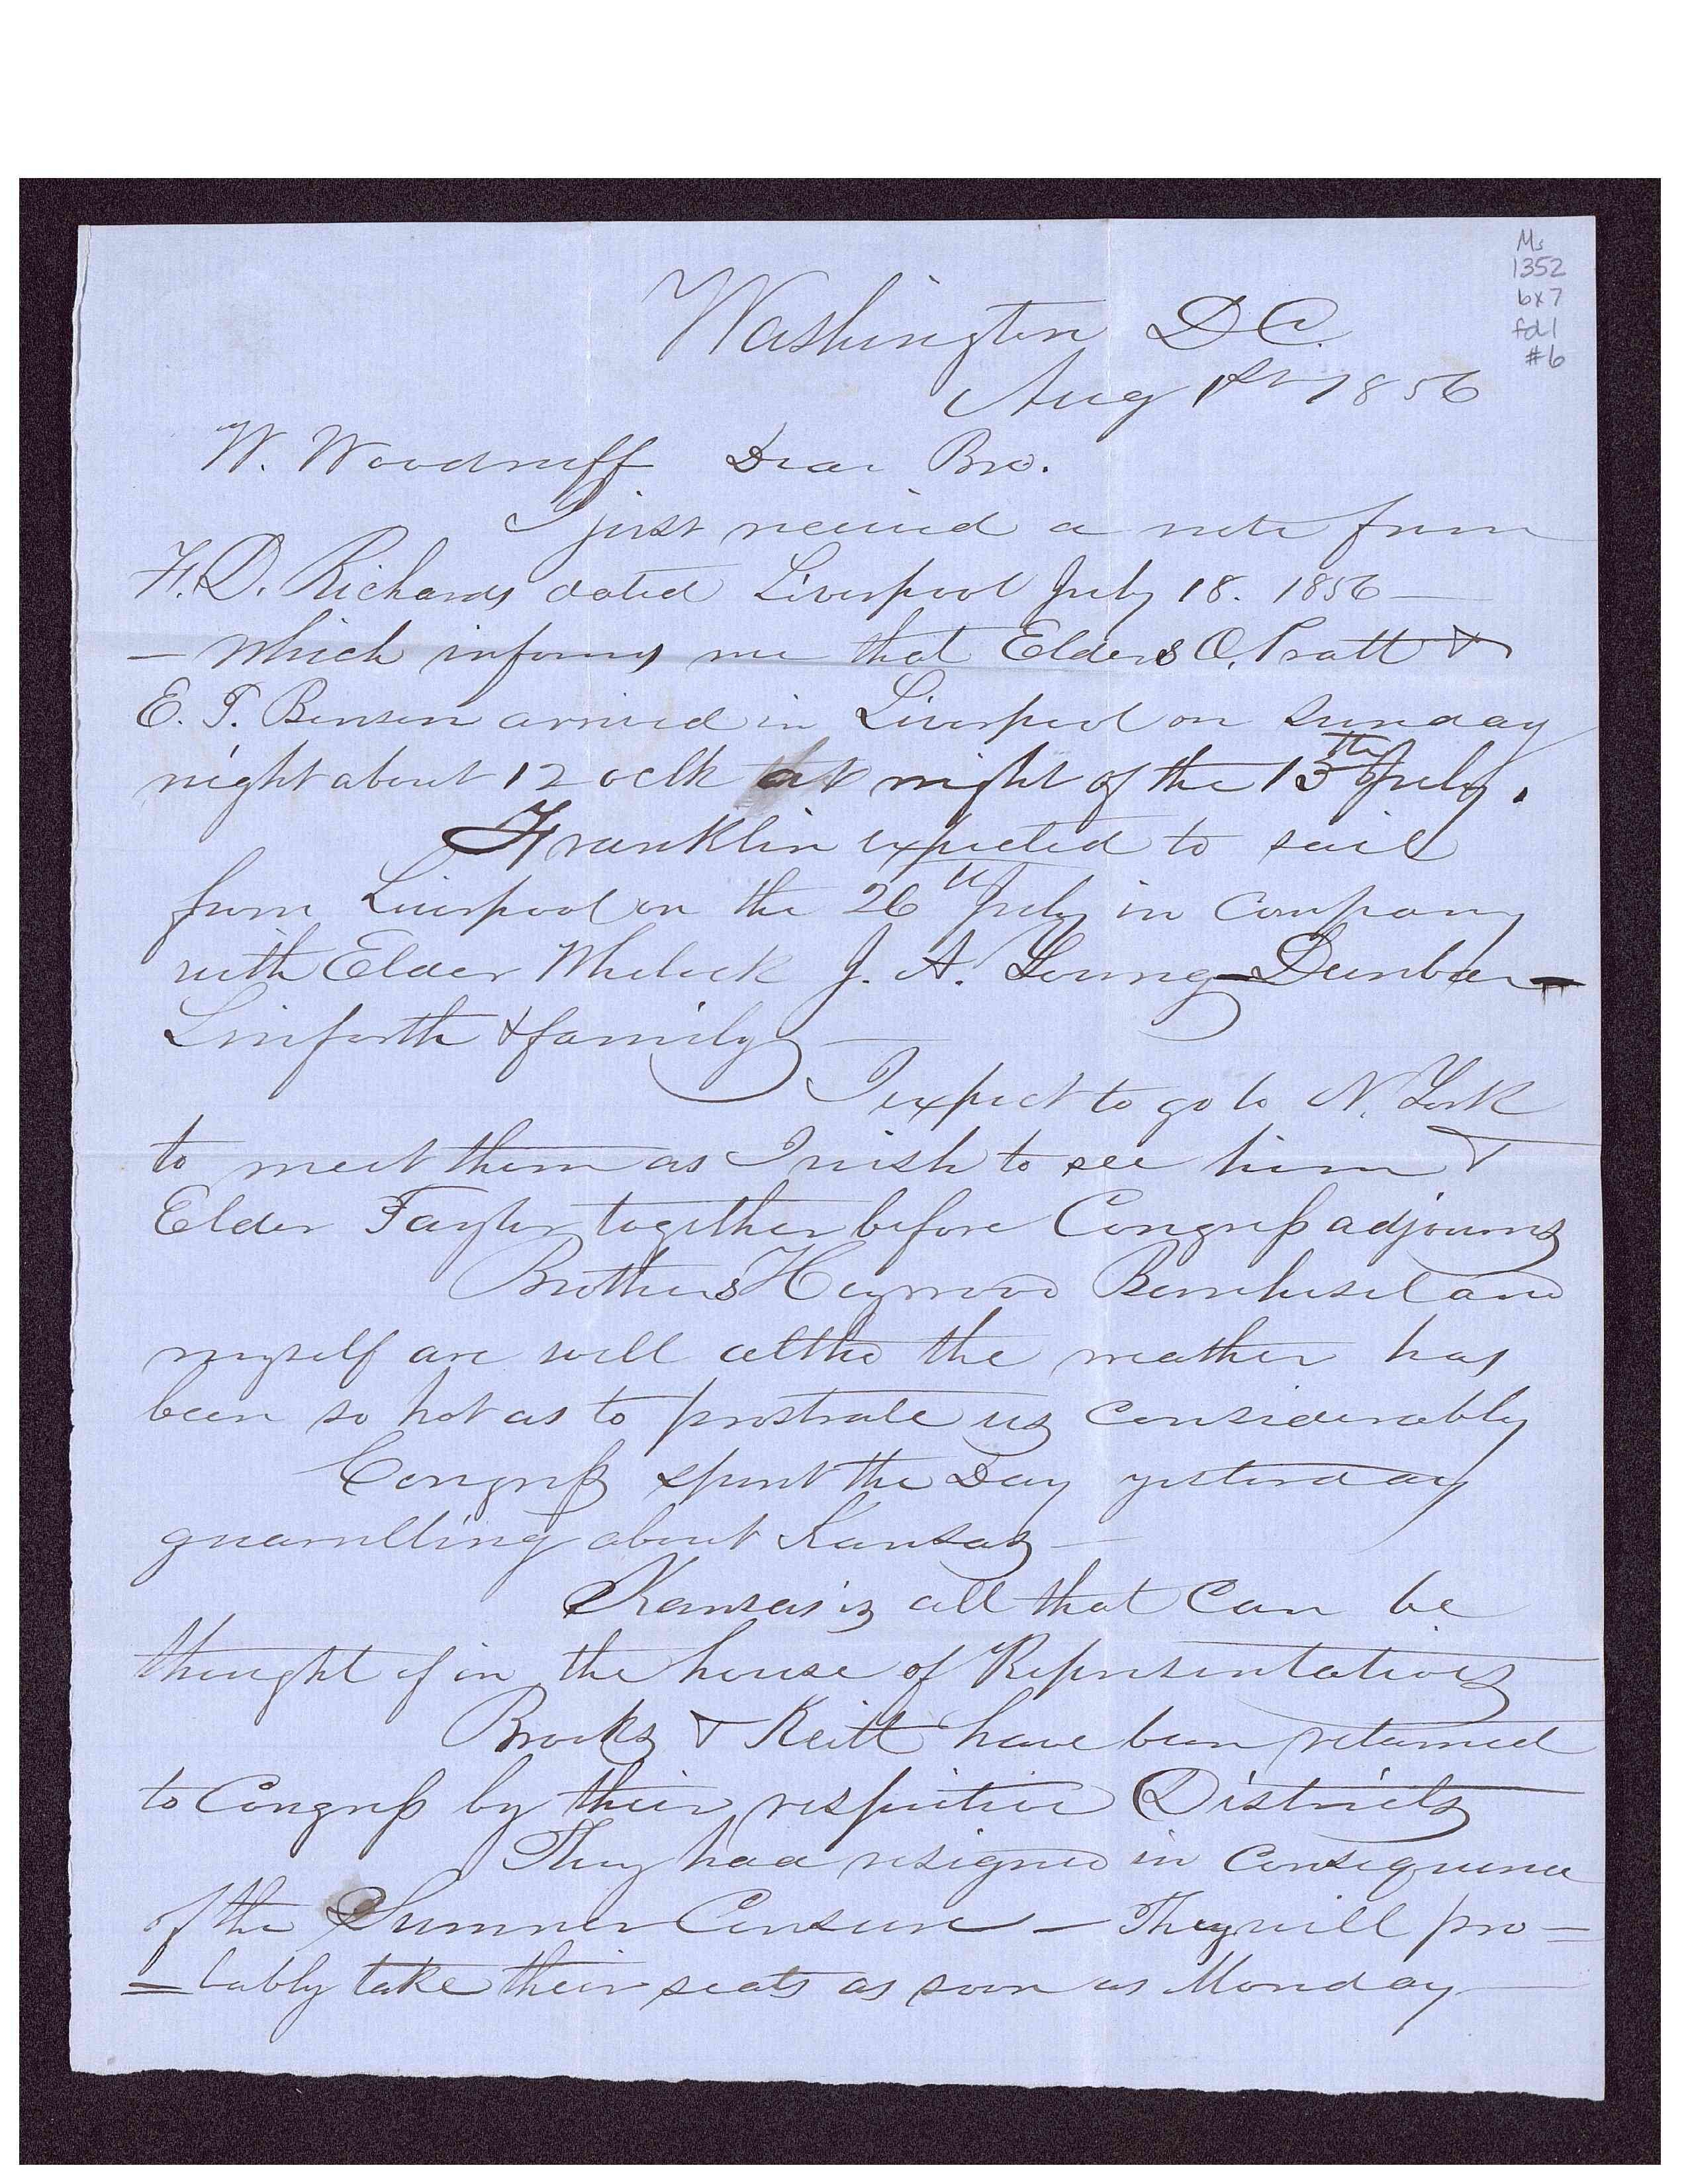 Ms
1352
bx 7
fd 1
#6
Washington D C.
Aug 1st 1856
W. Woodruff Dear Bro.
I just received a note from
F. D. Richards dated Liverpool July 18. 1856 —
— which informs me that Elders O. Pratt &
E. T. Benson arrived in Liverpool on Sunday
night about 12 oclk at night of the 13th July.
Franklin expected to sail
from Liverpool on the 26th July in company
with Elder Wheelock J. A. Young — Dunbar —
Linforth & family —
I expect to go to N. York
to meet them as I wish to see him &
Elder Taylor together before Congress adjourns
Brothers Heywood Bernhisel and
myself are well altho the weather has
been so hot as to prostrate us considerably
Congress spent the Day yesterday
quarrelling about Kansas —
Kansas is all that can be
thought of in the house of Representatives
Brooks & Keitt have been returned
to Congress by their respective Districts
They had resigned in consequence
of the Sumner Censure — They will pro=
=bably take their seats as soon as Monday —